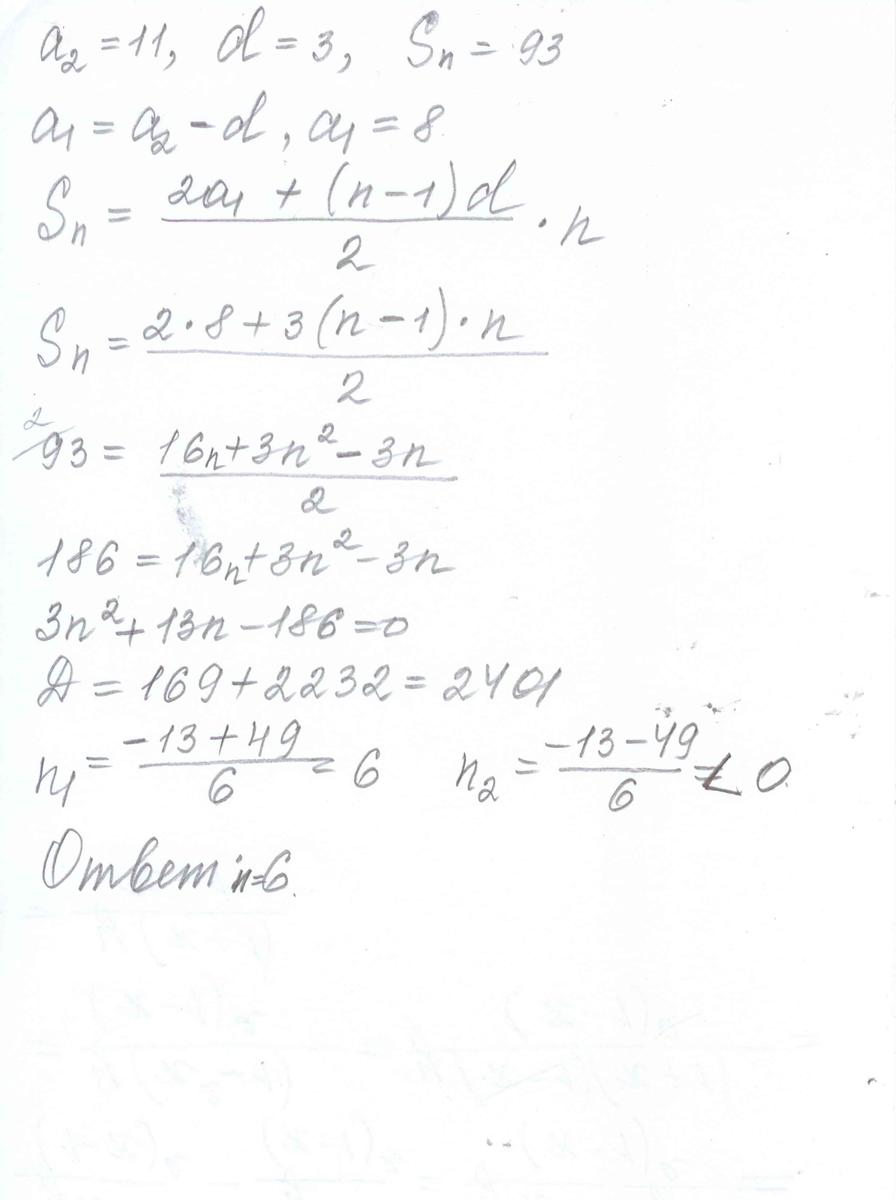 a₂ = 11, d = 3, Sₙ = 93
a₁ = a₂ - d, a₁ = 8
Sₙ = (2a₁ + (n-1)d)/2 · n
Sₙ = (2·8 + 3(n-1)·n)/2
²⁄93 = (16n + 3n² - 3n)/2
186 = 16n + 3n² - 3n
3n² + 13n - 186 = 0
Д = 169 + 2232 = 2401
n₁ = (-13 + 49)/6 = 6 n₂ = (-13 - 49)/6 < 0.
Ответ: n=6.